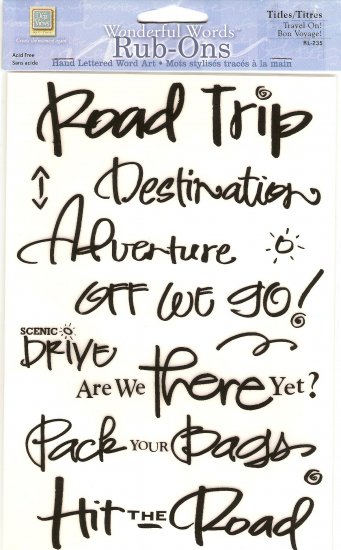 Wonderful Words™
Rub-Ons™
Acid Free
Sans acide
Titles/Titres
Travel On!
Bon Voyage!
RL-235
Hand Lettered Word Art • Mots stylisés tracés à la main
Road Trip
Destination
Adventure
OFF WE GO!
SCENIC
DRIVE
Are We there Yet?
Pack YOUR Bags
Hit THE Road